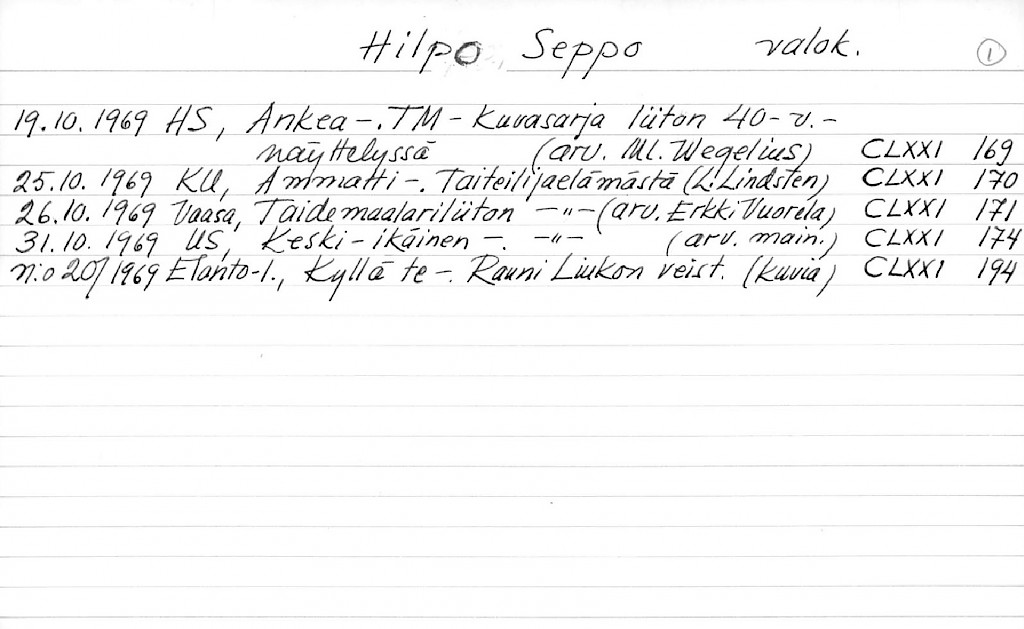 Hilpo, Seppo valok. 1
19.10.1969 HS, Ankea-. TM-kuvasarja liiton 40-v.-
näyttelyssä (arv. Ml. Wegelius) CLXXI 169
25.10.1969 KU, Ammatti-. Taiteilijaelämästä (L. Lindsten) CLXXI 170
26.10.1969 Vaasa, Taidemaalariliiton -"- (arv. Erkki Vuorela) CLXXI 171
31.10.1969 US, Keski-ikäinen -. -"- (arv. main.) CLXXI 174
n:o 20/1969 Elanto-l., Kyllä te-. Rauni Liukon veist. (kuvia) CLXXI 194